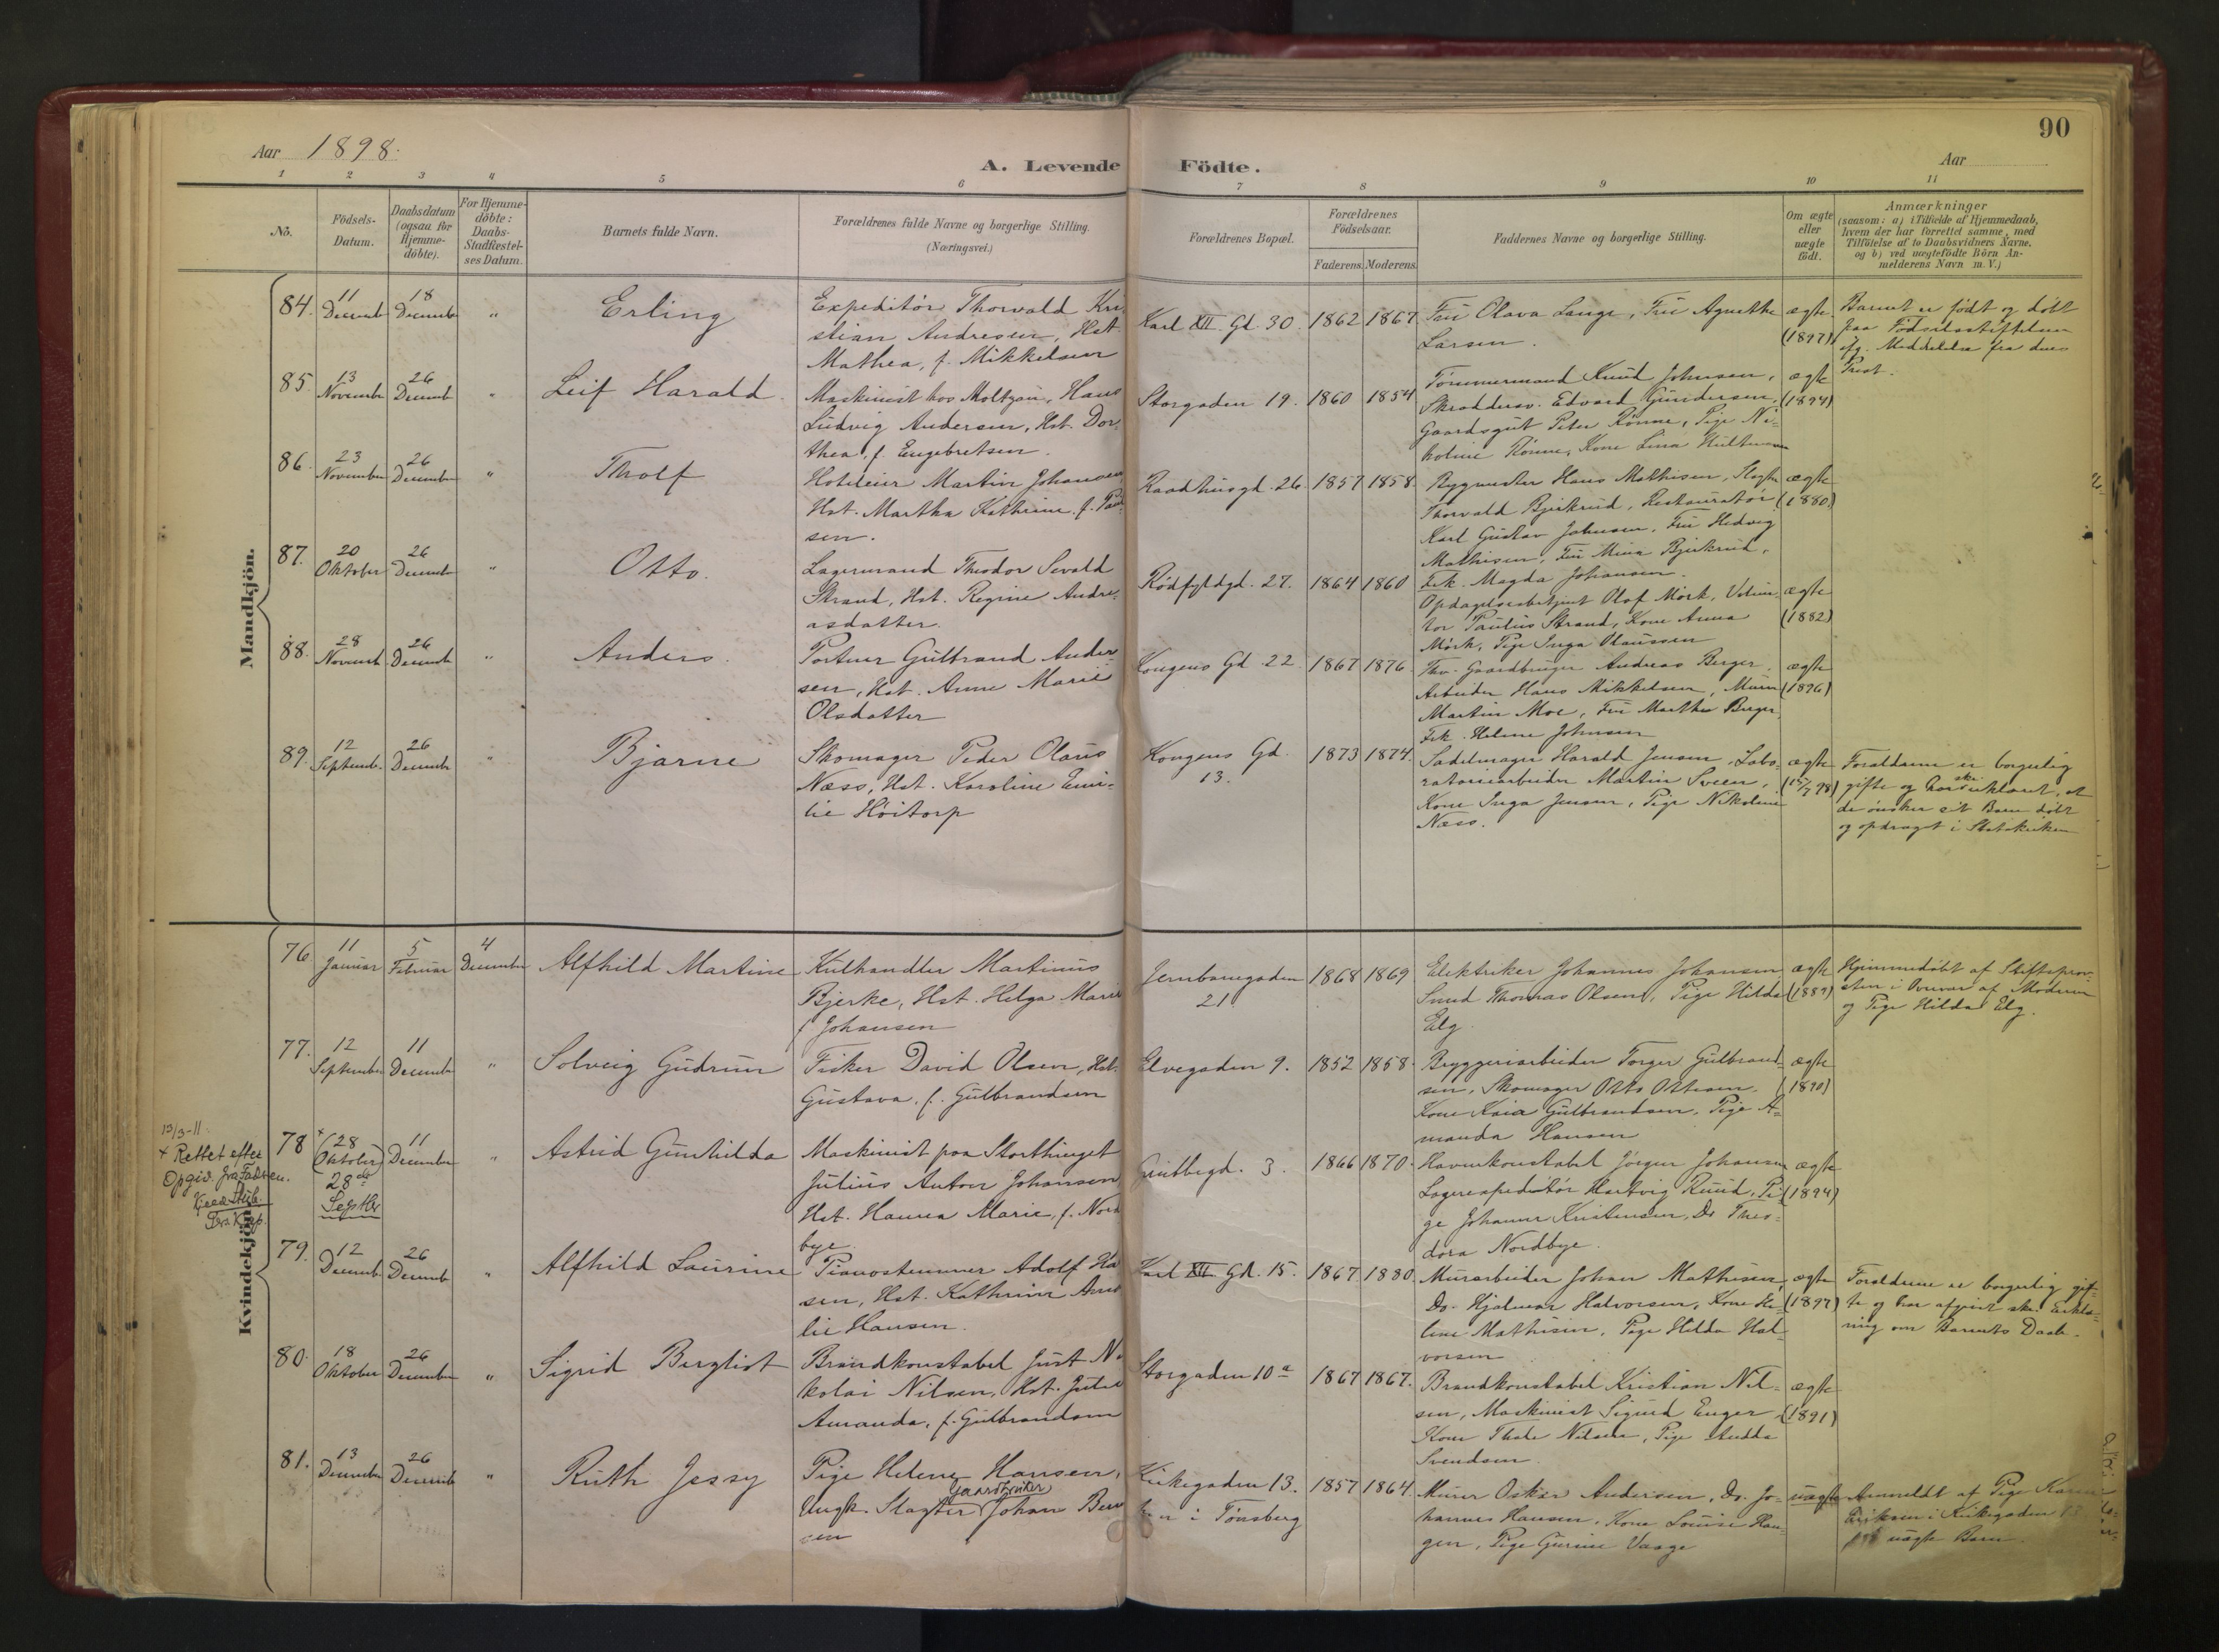 90
Aar 1898.
A. Levende Födte.
Aar
1 2 3 4 5 6 7 8 9 10 11
No.
Födsels-Datum.
Daabsdatum (ogsaa for Hjemme-döbte).
For Hjemme-döbte: Daabs-Stadfæstel-ses Datum.
Barnets fulde Navn.
Forældrenes fulde Navne og borgerlige Stilling.
(Næringsvei.)
Forældrenes Bopæl.
Forældrenes Födselsaar.
Faderens. Moderens.
Faddernes Navne og borgerlige Stilling.
Om ægte eller uægte födt.
Anmærkninger
(saasom: a) i Tilfælde af Hjemmedaab,
hvem der har forrettet samme, med
Tilföielse af to Daabsvidners Navne,
og b) ved uægtefödte Börn An-
melderens Navn m. V.)
Mandkjön.
84. 11 Decemb 18 Decemb " Erling
Expeditör Thorvald Kri
stian Andresen, Hst
Mathea, f. Mikkelsen
Karl XII. Gd. 30. 1862 1867
Fru Olava Lange, Fru Agnethe
Larsen.
ægte (1897)
Barnet er født og døbt
paa Fødselsstiftelsen
ifg. Meddelelse fra dens
Prest.
85. 13 Novembr 26 Decemb " Leif Harald.
Maskinist hos Moltzau, Hans
Ludvig Andersen, Hst. Dor
thea, f. Engebretsen.
Storgaden 19. 1860 1854
Tømmermand Knud Johnsen,
Skræddersv. Edvard Gundersen,
Gaardsgut Peter Rönne, Pige Ni-
koline Rönne, Kone Lina
ægte (1894)
86. 23 November 26 December " Tholf
Hoteleier Martin Johansen
Hst. Martha Kathrine, f. Paul
sen.
Raadhusgd. 26. 1857 1858
Bygmester Hans Mathisen, Slagter
Thorvald Bjerknud, Restauratör
Karl Gustav Johnsen, Fru Hedvig
Mathisen, Fru Mina Bjerknud,
Frk. Magda Johansen.
ægte (1880)
87. 20 Oktober 26 Decemb " Otto.
Lagermand Theodor Sevald
Strand, Hst. Regine Andre-
asdatter.
Rødfyldgd. 27. 1864 1860
Opdagelsesbetjent Olaf Mörk,
Paulus Strand, Kone Anna
Mörk, Pige Inga Olaussen
ægte (1882)
88. 28 Novemb 26 Decemb " Anders.
Portner Gulbrand Ander
sen, Hst. Anne Marie
Olsdatter
Kongens Gd. 22. 1867 1876
Fhv. Gaardbruger Andreas Berger,
Arbeider Hans Mikkelsen, Murer
Martin Moe, Fru Marthe Berger,
Frk. Helene Johnsen
ægte (1896)
89. 12 Septemb. 26 Decemb " Bjarne
Skomager Peder Olaus
Næss, Hst. Karoline Emi-
lie Höitorp
Kongens Gd. 13. 1873 1874.
Sadelmager Harald Jensen, Labo-
ratoriearbeider Martin Sveen,
Kone Inga Jensen, Pige Nikoline
Næss.
ægte
Forældrene er borgerlig
gifte og har skr. erklæret, at
de ønsker sit Barn døbt
og opdraget i Statskirken
Kvindekjön.
76. 11 Januar 5 Februar 4 December Alfhild Martine
Kulhandler Martinus
Bjerke, Hst. Helga Marie
f Johansen
Jernbanegaden 21. 1868 1869
Elektriker Johannes Johansen
Smed Thomas Olsen, Pige Hilda
Elg
ægte (1889)
Hjemmedøbt af Stiftsprov-
sten i Overvær af Moderen
og Pige Hilda Elg.
77. 12 September 11 Decemb " Solveig Gudrun
Fisker David Olsen, Hst.
Gustava, f. Gulbrandsen
Elvegaden 9. 1852 1858.
Bryggeriarbeider Torger Gulbrand-
sen, Skomager Otto Ottesen,
Kone Kaia Gulbrandsen, Pige A-
manda Hansen
ægte (1890)
13/3-11.
+ Rettet efter
Opgiv. fra Faderen.
78 + (28 Oktober) 28de Septbr 11 December " Astrid Gunhilda
Maskinist paa Storthinget
Julius Anton Johansen
Hst. Hanna Marie, f. Nord
bye.
Grubbegd. 3. 1866 1870.
Havnekonstabel Jörgen Johansen
Lagerexpeditör Hartvig Ruud, Pi-
ge Johanne Kristensen, Do Theo-
dora Nordbye.
ægte (1894)
79. 12 Decemb 26 Decemb " Alfhild Laurine
Pianostemmer Adolf Ha
sen, Hst. Kathrine Ama
lie Hansen.
Karl XII. Gd. 15. 1867 1880
Murarbeider Johan Mathisen,
Do. Hjalmar Halvorsen, Kone He-
lene Mathisen, Pige Hilda Hal-
vorsen
ægte (1897)
Forældrene er borgerlig gif-
te og har afgivet skr. Erklæ-
ring om Barnets Daab.
80. 18 Oktober 26 December " Sigrid Bergliot
Brandkonstabel Just Ni
kolai Nilsen, Hst. Julie
Amanda, f. Gulbrandsen
Storgaden 10a 1867 1867.
Brandkonstabel Kristian Nil-
sen, Maskinist Sigurd Enger,
Kone Thale Nilsen, Pige Hudda
Svendsen.
ægte (1891)
81. 13 December 26 Decemb " Ruth Jessy
Pige Helene Hansen,
Gaardbruker
Ungk. Slagter Johan Bern
sen i Tönsberg
Kirkegaden 13. 1857 1864.
Murer Oskar Andersen, Do. Jo-
hannes Hansen, Kone Louise Han-
gen, Pige Gurine Vaage
uægte
Anmeldt af Pige Karen
Eriksen i Kirkegaden 13
uægte Barn.